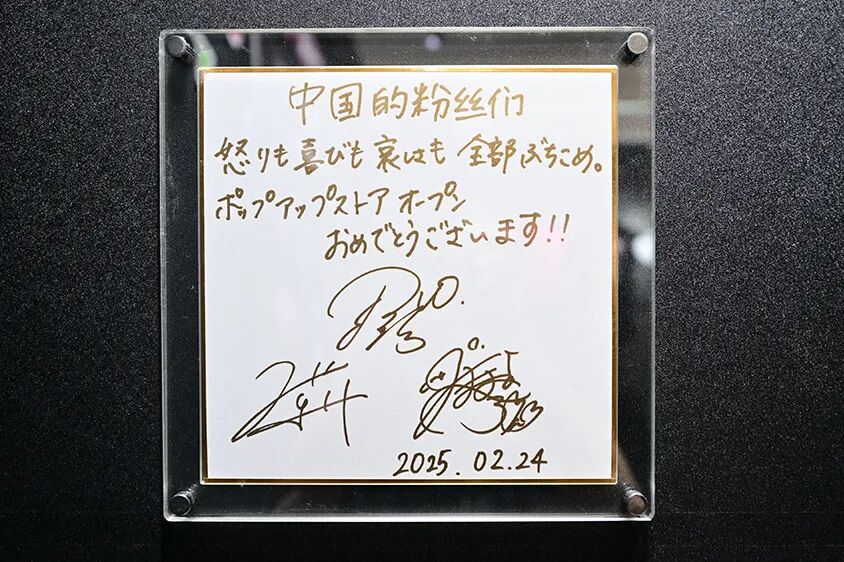 中国的粉丝们
怒りも喜びも哀しみも全部ぶちこめ。
ポップアップストアオープン
おめでとうございます!!
2025.02.24